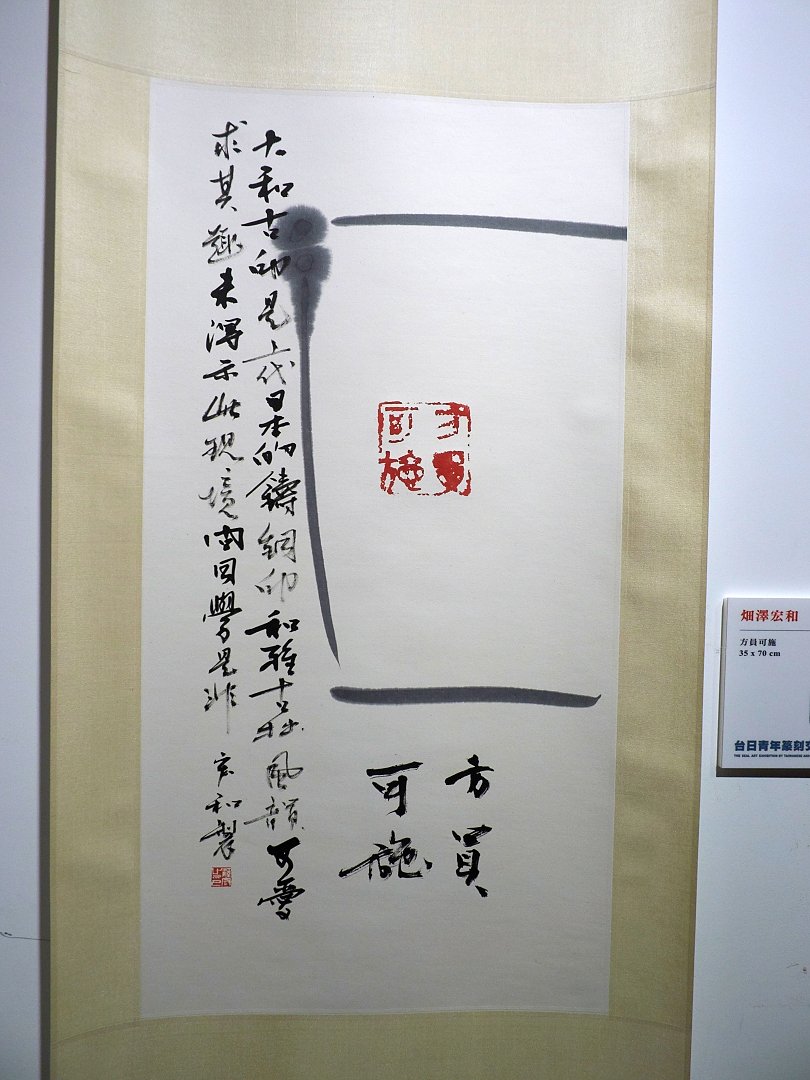 方員
可施
方員
可施
大和古印是上代日本的鑄銅印和雅古朴風韻可愛
求其趣未得示此現境同學是非 宏和製
畑澤宏和
方員可施
35 x 70 cm
台日青年篆刻
THE SEAL ART EXHIBITION BY TAIWANESE